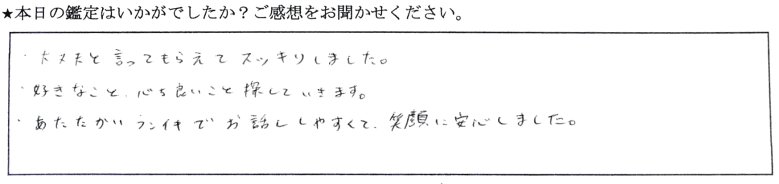 ★本日の鑑定はいかがでしたか？ご感想をお聞かせください。
・大丈夫と言ってもらえてスッキリしました。
・好きなこと、心ち良いこと探していきます。
・あたたかいフンイキでお話ししやすくて、笑顔に安心しました。